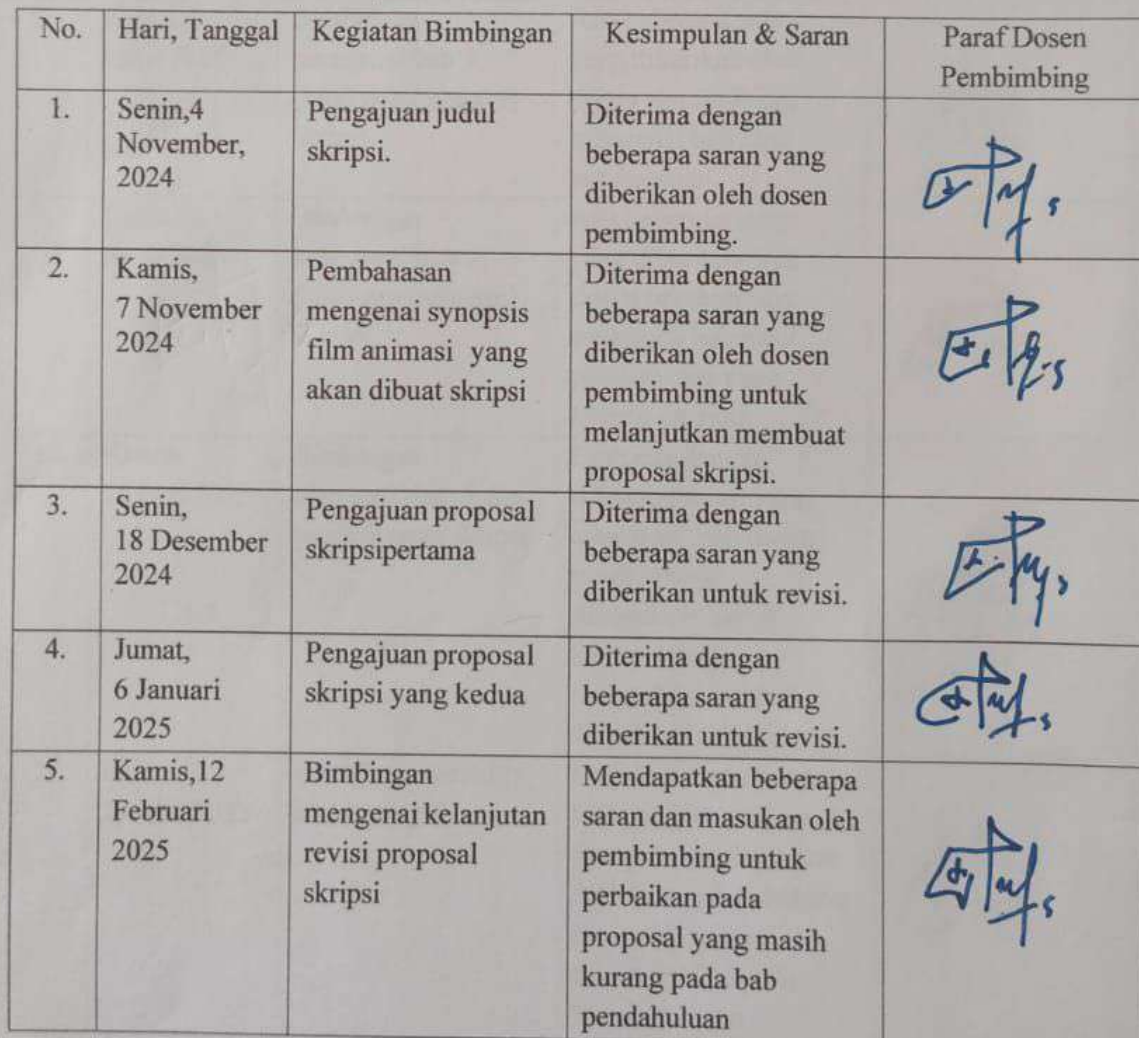 No. Hari, Tanggal Kegiatan Bimbingan Kesimpulan & Saran Paraf Dosen
Pembimbing
1. Senin,4
November,
2024
Pengajuan judul
skripsi.
Diterima dengan
beberapa saran yang
diberikan oleh dosen
pembimbing.
2. Kamis,
7 November
2024
Pembahasan
mengenai synopsis
film animasi yang
akan dibuat skripsi
Diterima dengan
beberapa saran yang
diberikan oleh dosen
pembimbing untuk
melanjutkan membuat
proposal skripsi.
3. Senin,
18 Desember
2024
Pengajuan proposal
skripsipertama
Diterima dengan
beberapa saran yang
diberikan untuk revisi.
4. Jumat,
6 Januari
2025
Pengajuan proposal
skripsi yang kedua
Diterima dengan
beberapa saran yang
diberikan untuk revisi.
5. Kamis,12
Februari
2025
Bimbingan
mengenai kelanjutan
revisi proposal
skripsi
Mendapatkan beberapa
saran dan masukan oleh
pembimbing untuk
perbaikan pada
proposal yang masih
kurang pada bab
pendahuluan